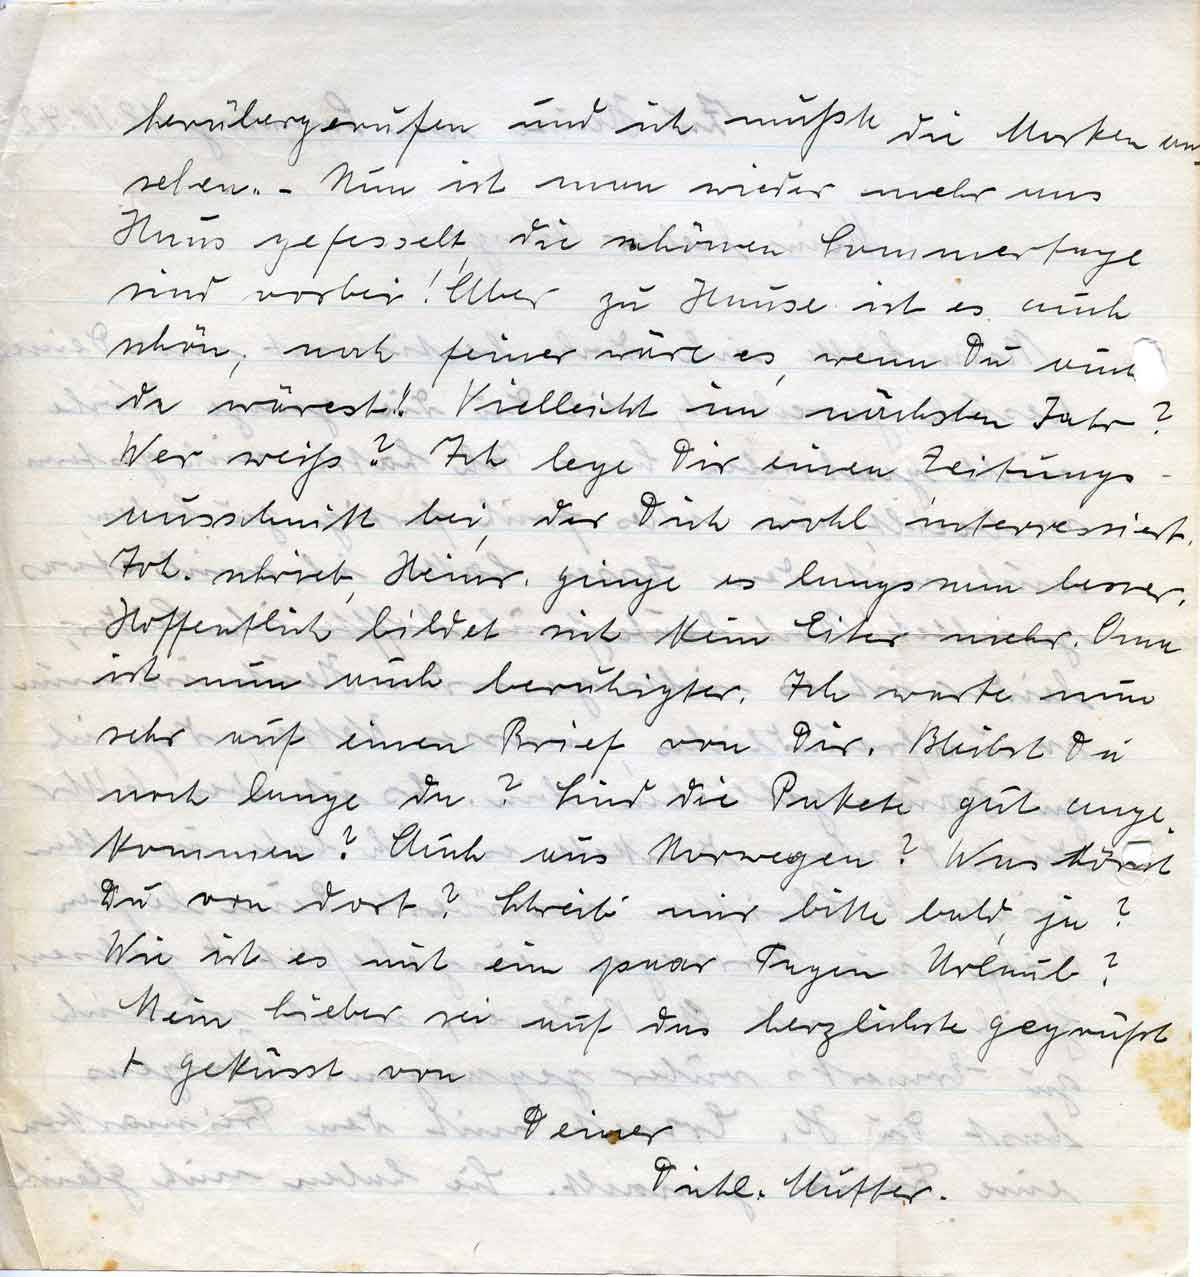 herübergerufen und ich mußte die Marken an-
sehen. - Nun ist man wieder mehr ans
Haus gefesselt, die schönen Sommertage
sind vorbei! Aber zu Hause ist es auch
schön, noch feiner wäre es, wenn Du auch
da wärest!! Vielleicht im nächsten Jahr?
Wer weiß? Ich lege Dir einen Zeitungs-
ausschnitt bei, der Dich wohl interressiert.
Joh. schrieb, Heinr. ginge es langsam besser.
Hoffentlich bildet sich kein Eiter mehr. Oma
ist nun auch beruhigter. Ich warte nun
sehr auf einen Brief von Dir. Bleibst Du
noch lange da? Sind die Pakete gut ange-
kommen? Auch aus Norwegen? Was hörst
Du von dort? Schreib mir bitte bald, ja?
Wie ist es mit ein paar Tagen Urlaub?
Mein Lieber sei auf das herzlichste gegrüßt
+ geküsst von
Deiner
Mutter.